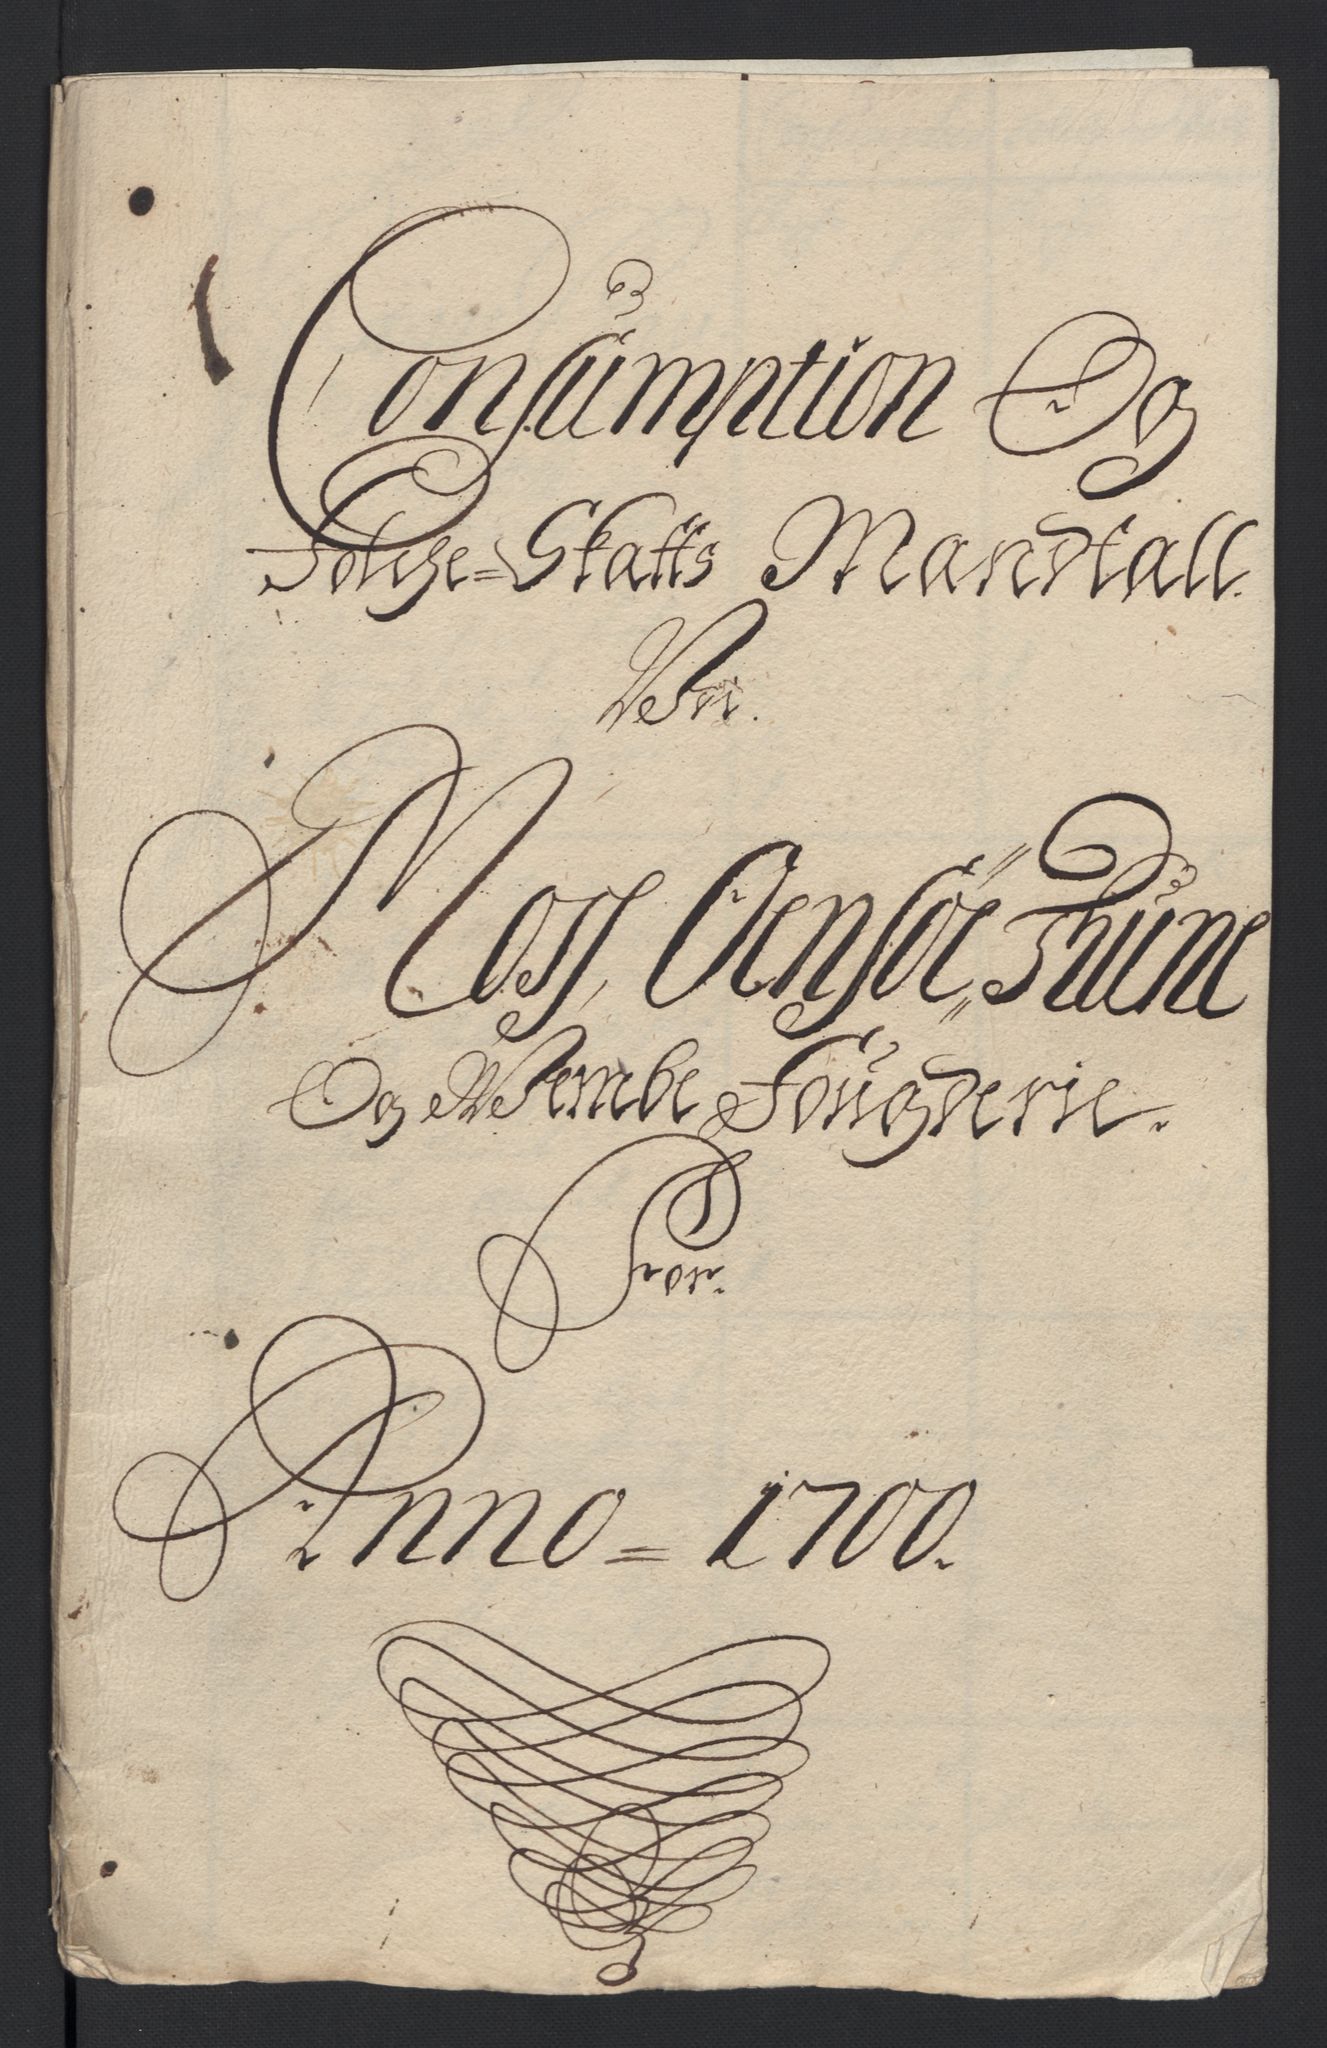 Consumption Og
Folche=Skatts Mandtall
Ved.
Moss, Oensöe, Thune
Og Wembe Fougderie.
For.
Anno = 1700.